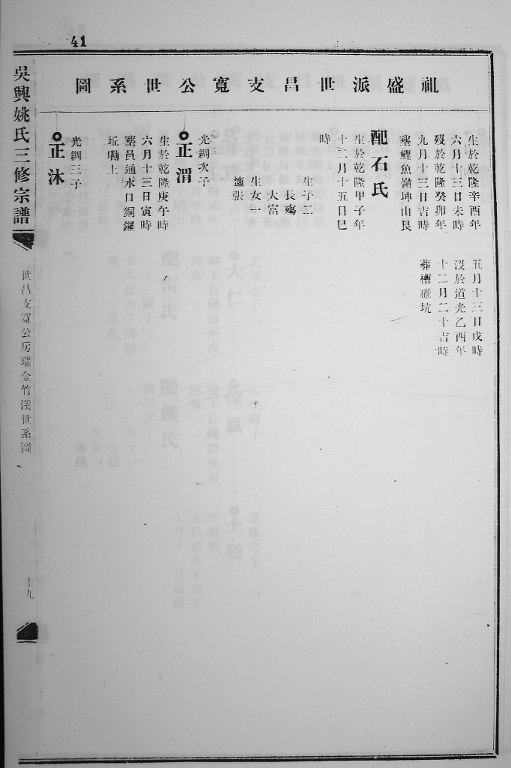 41
祖盛派世昌支寬公世系圖
生於乾隆辛酉年
六月十三日未時
歿於乾隆癸卯年
九月十三日吉時
葬鯉魚嶺坤山艮
配石氏
生於乾隆甲子年
十二月十五日巳
時
生子二
長殤
大富
生女一
適張
五月十三日戌時
沒於道光乙酉年
十二月二十吉時
葬槽碓坑
正渭
光綢次子
生於乾隆庚午年
六月十三日寅時
葬邑通水口銅鑼
坵墈上
正沐
光綢三子
吳興姚氏三修宗譜
世昌支寬公房瑞金竹溪世系圖
十九